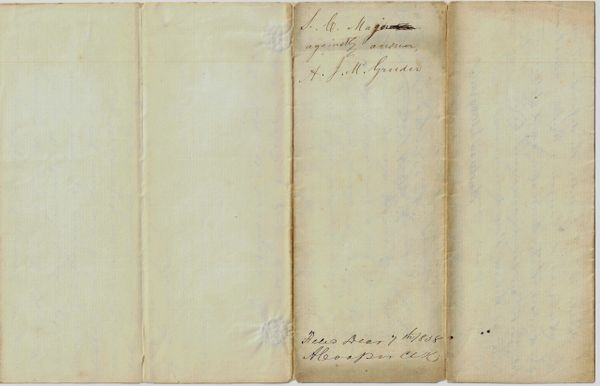 S. C. Major
against answer
A. J. McGruder
Filed Decr 7th 1858
A Cooper Clk